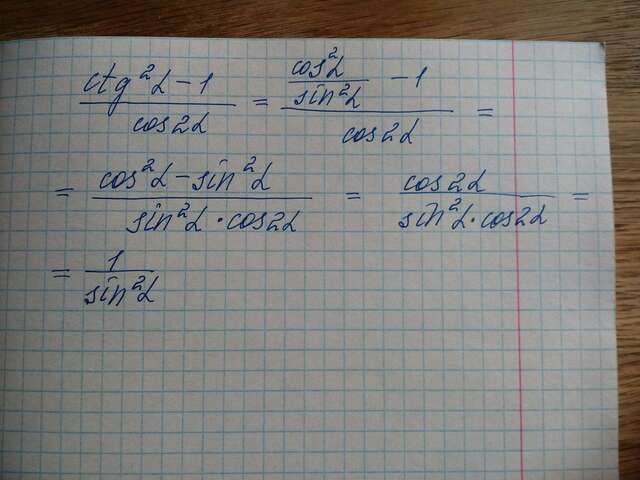 (ctg²α - 1) / cos2α = (cos²α / sin²α - 1) / cos2α =
= (cos²α - sin²α) / (sin²α · cos2α) = cos2α / (sin²α · cos2α) =
= 1 / sin²α